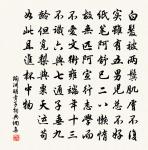 白髮被兩鬢肌膚不復
實雖有五男兒總不好
紙筆阿舒已二八懶惰
故無匹阿宣行志學而
不愛文術雍端年十三
不識六與七通子垂九
齡但覓梨與栗天運苟
如此且進杯中物